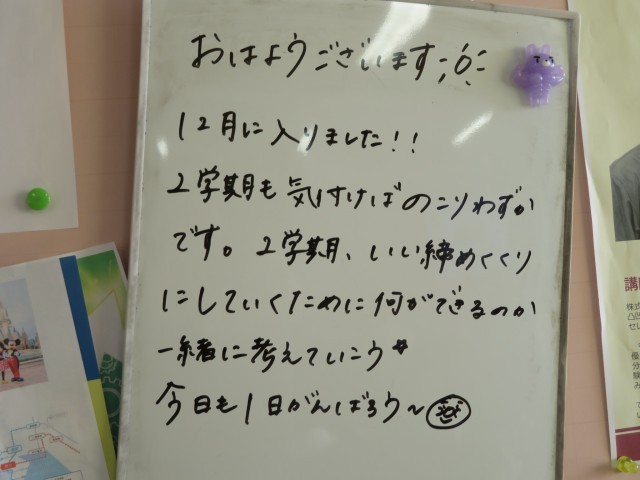 おはようございます
12月に入りました!!
2学期も気付けばのこりわずか
です。2学期、いい締めくくり
にしていくために何ができるのか
一緒に考えていこう
今日も1日がんばろう〜
講
株式
凸凹
セレ